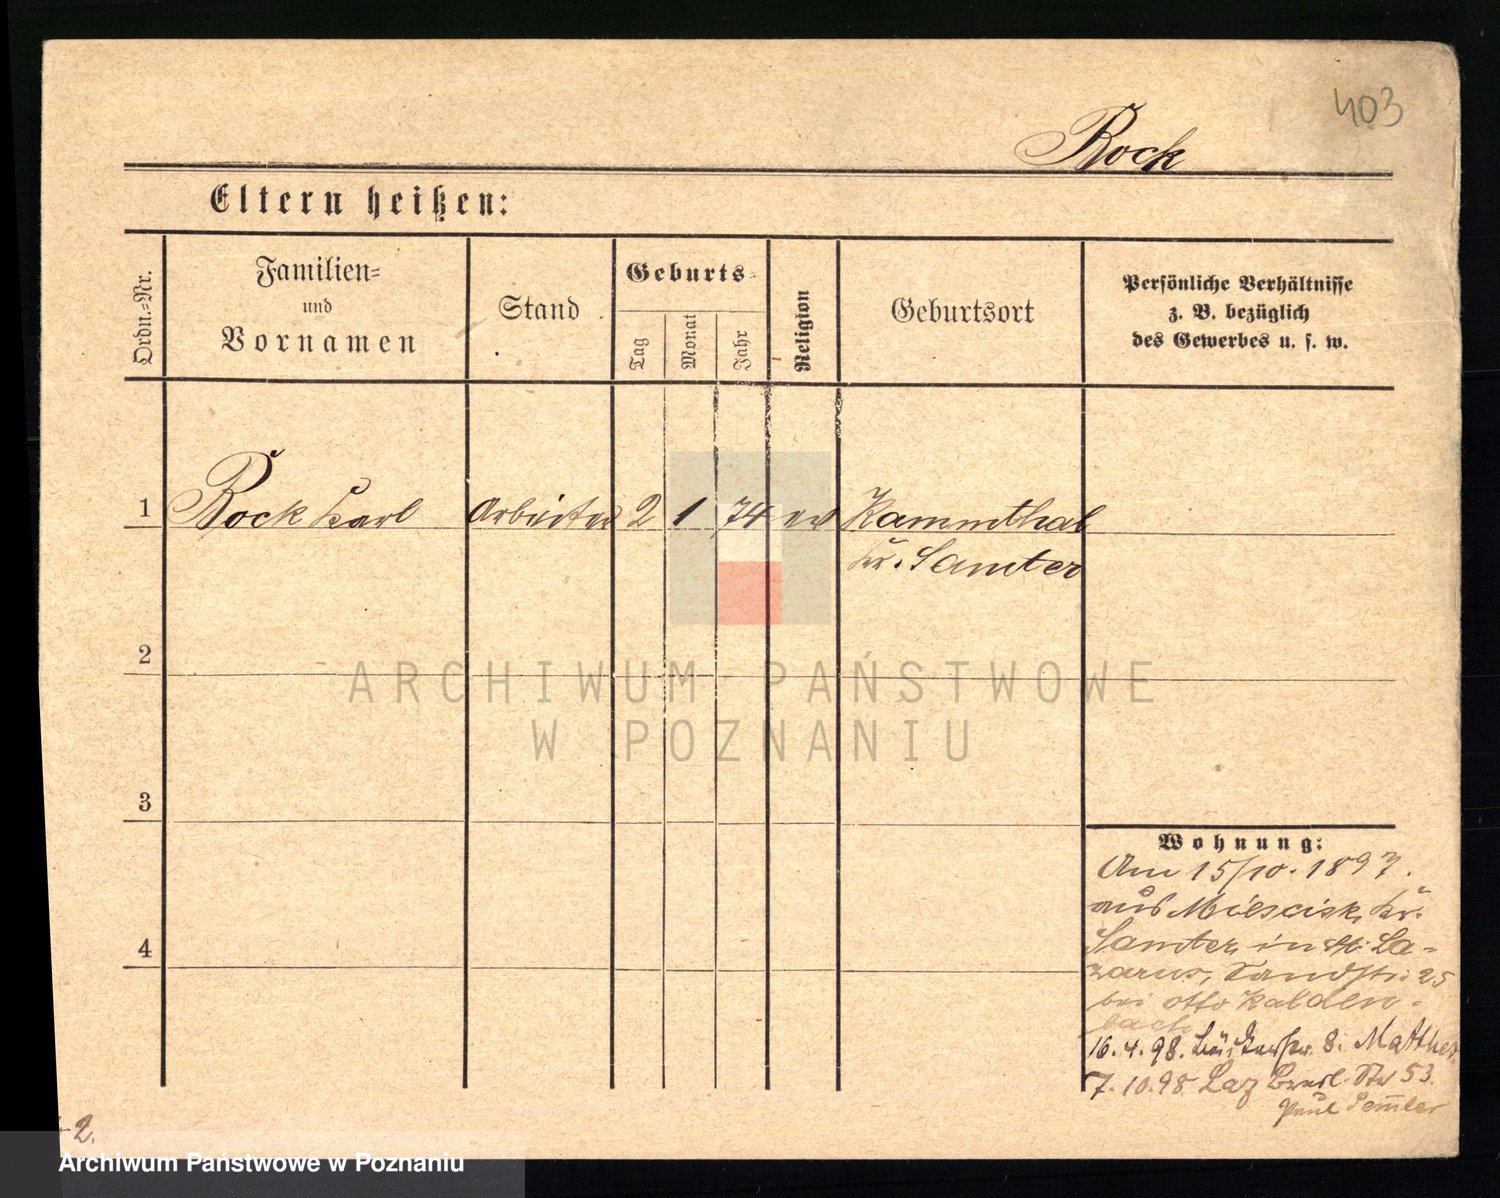 403
Rock
Eltern heißen:
Ordn.=Nr.
Familien=
und
Vornamen
Stand
Geburts=
Tag
Monat
Jahr
Religion
Geburtsort
Persönliche Verhältnisse
z. B. bezüglich
des Gewerbes u. s. w.
1 Rock Karl Arbeiter 2 1 74 ev Kammthal
Kr. Samter
2
3
4
Wohnung:
Am 15/10. 1897.
aus Miescisk, Kr.
Samter, in St. La-
zarus, Sandstr. 25
bei Otto Kalden-
bach
16.4.98. 8. Matthes
7.10.98 Laz Str 53.
Paul
2.
ARCHIWUM PAŃSTWOWE
W POZNANIU
Archiwum Państwowe w Poznaniu